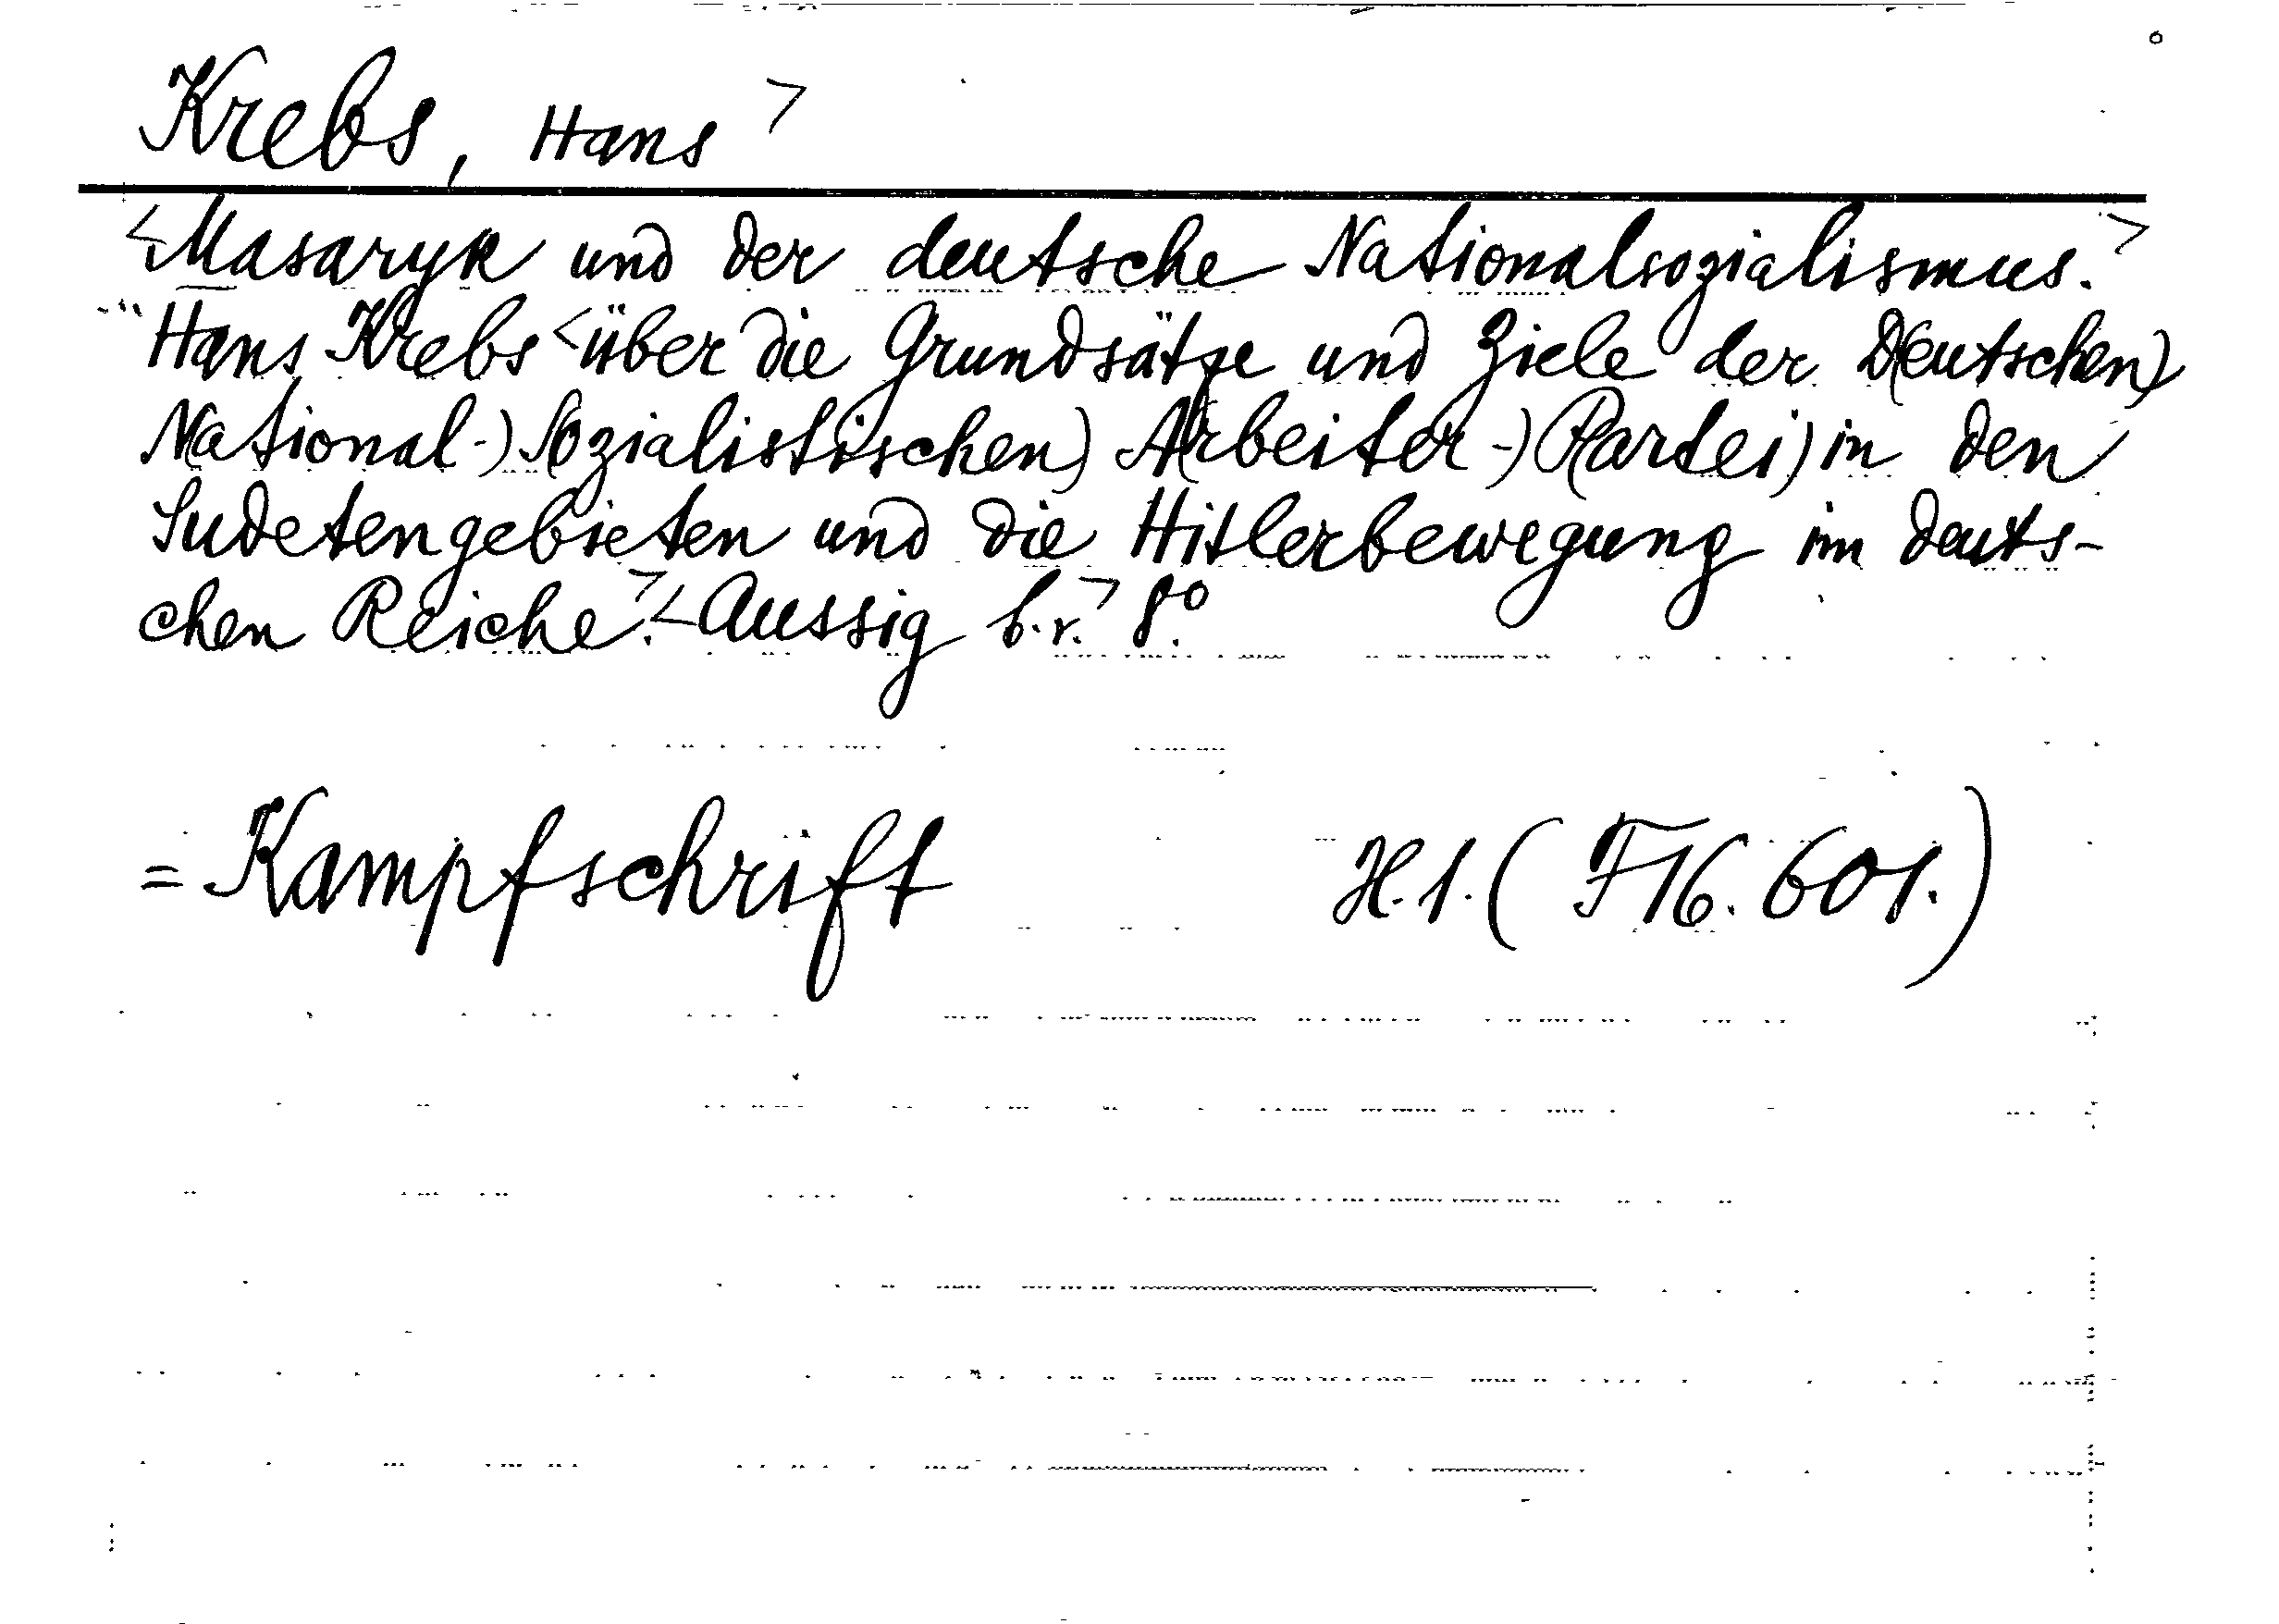 Krebs, Hans >
<Masaryk und der deutsche Nationalsozialismus.>
Hans Krebs <über die Grundsätze und Ziele der D(eutschen)
N(ational-) S(ozialistischen) A(rbeiter-) P(artei) in den
Sudetengebieten und die Hitlerbewegung im deuts-
chen Reiche.> <Aussig b.r.> 8°.
= Kampfschrift H.1. (F 16. 601.)